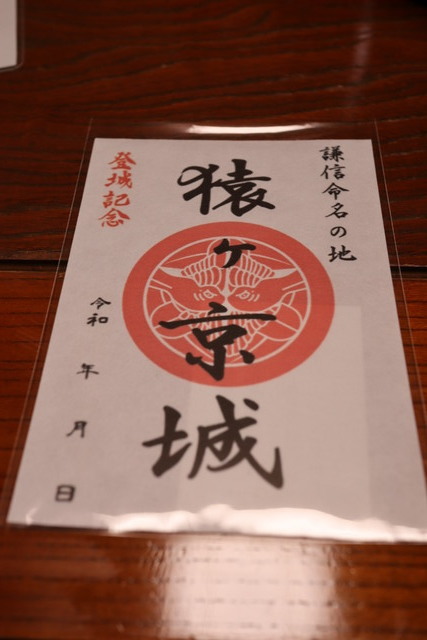 謙信命名の地
猿ヶ京城
登城記念
令和　年　月　日